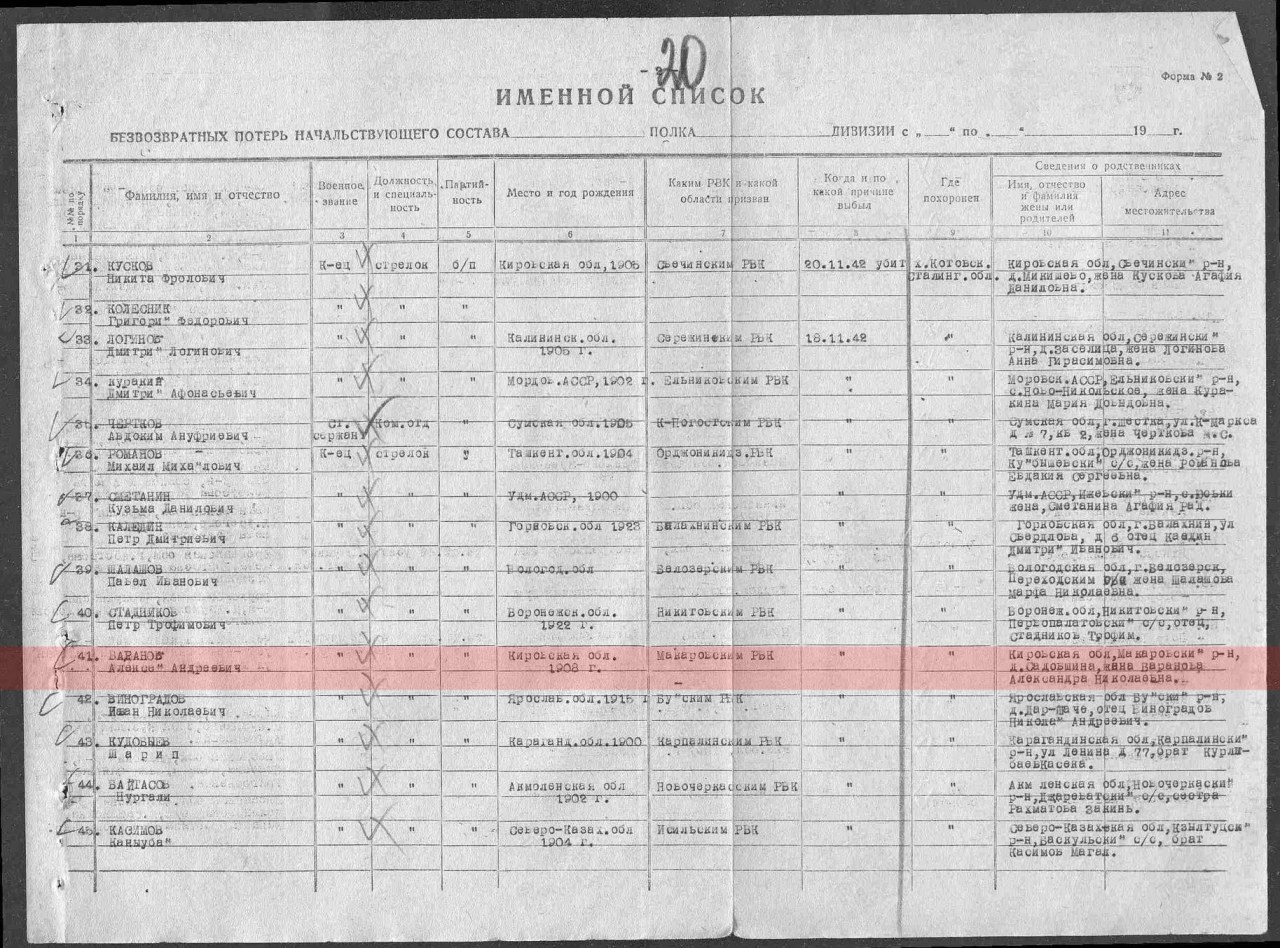 - 2
20
Форма № 2
ИМЕННОЙ СПИСОК
БЕЗВОЗВРАТНЫХ ПОТЕРЬ НАЧАЛЬСТВУЮЩЕГО СОСТАВА ПОЛКА ДИВИЗИИ с „ “ по „ “ 19 г.
№№ по порядку
Фамилия, имя и отчество
Военное звание
Должность и специальность
Партийность
Место и год рождения
Каким РВК и какой области призван
Когда и по какой причине выбыл
Где похоронен
Сведения о родственниках
Имя, отчество и фамилия жены или родителей
Адрес местожительства
1 2 3 4 5 6 7 8 9 10 11
31. КУСКОВ К-ец стрелок б/п Кировская обл,1905 Свечинским РВК 20.11.42 убит х.Котовск. Кировская обл,Свечински" р-н,
Никита Фролович Сталинг.обл. д.Микишево,жена Кускова Агафия
Даниловна.
32. КОЛЕСНИК " " "
Григори" Федорович
33. ЛОГИНОВ " " " Калининск.обл. Сережинским РВК 18.11.42 " Калининская обл,Сережински"
Дмитри" Логинович 1905 г. р-н,д.Заселица,жена Логинова
Анна Гирасимовна.
34. куракин " " " Мордов.АССР,1902 г. Ельниковским РВК " " Моровск.АССР,Ельниковски" р-н,
Дмитри" Афонасьевич с.Ново-Никольское, жена Кура-
кина Мария
35. ЧЕРТКОВ Ст. Ком.отд " Сумская обл.1905 К-Погостским РВК " " Сумская обл,г.Шестка,ул.К-Маркса
Авдоким Ануфриевич сержант д № 7,кв 2,жена Черткова М.С.
36. РОМАНОВ К-ец стрелок " Ташкент.обл.1904 Орджоникидз.РВК " " Ташкент.обл,Орджоникидз.р-н,
Михаил Миха"лович Ку"бышевски" с/с,жена Романова
Евдакия Сергеевна.
37. СМЕТАНИН " " " Удм.АССР, 1900 " " Удм.АССР,Ижевски" р-н,
Кузьма Данилович жена,Сметанина Агафия
38. КАЛЕДИН " " " Горьовск.обл 1923 Балахнинским РВК " " Горковская обл,г.Балахнин,ул
Петр Дмитриевич Свердлова, д 6 отец Каедин
Дмитри" Иванович.
39. ШАЛАШОВ " " " Вологод.обл Белозерским РВК " " Вологодская обл,г.Белозерск,
Павел Иванович Переходским жена Шалашова
Марца Николаевна.
40. СТАДНИКОВ " " " Воронежск.обл. Никитовским РВК " " Воронеж.обл,Никитовски" р-н,
Петр Трофимович 1922 г. Первопалатовски" с/с,отец,
Стадников Трофим.
41. ВАРАНОВ " " " Кировская обл. Макаровским РВК " " Кировская обл,Макаровски" р-н,
Алекса" Андреевич 1908 г. д.Садовшина,жена Варанова
Александра Николаевна.
42. ВИНОГРАДОВ " " " Ярослав.обл.1915 г Бу"ским РВК " " Ярославская обл Бу"ски" р-н,
Иван Николаевич д.Дар-Щаче,отец Виноградов
Никола" Андреевич.
43. КУДОВЫЕВ " " " Караганд.обл.1900 Карпалинским РВК " " Карагандинская обл,Карпалински"
Ш а р и п р-н,ул Ленина д 77,брат Курлы-
баевкасена.
44. ВАЙГАСОВ " " " Акмоленская обл Новочеркасским РВК " " Акм ленская обл,Новочеркаски"
Нургали 1902 г. р-н,Джареватски" с/с,сестра
Рахматова Закинь.
45. КАСИМОВ " " " Северо-Казах.обл Исильским РВК " " Северо-Казахская обл,Кзылтуцск"
Канцуба" 1904 г. р-н,Баскульски" с/с, брат
Касимов Магал.